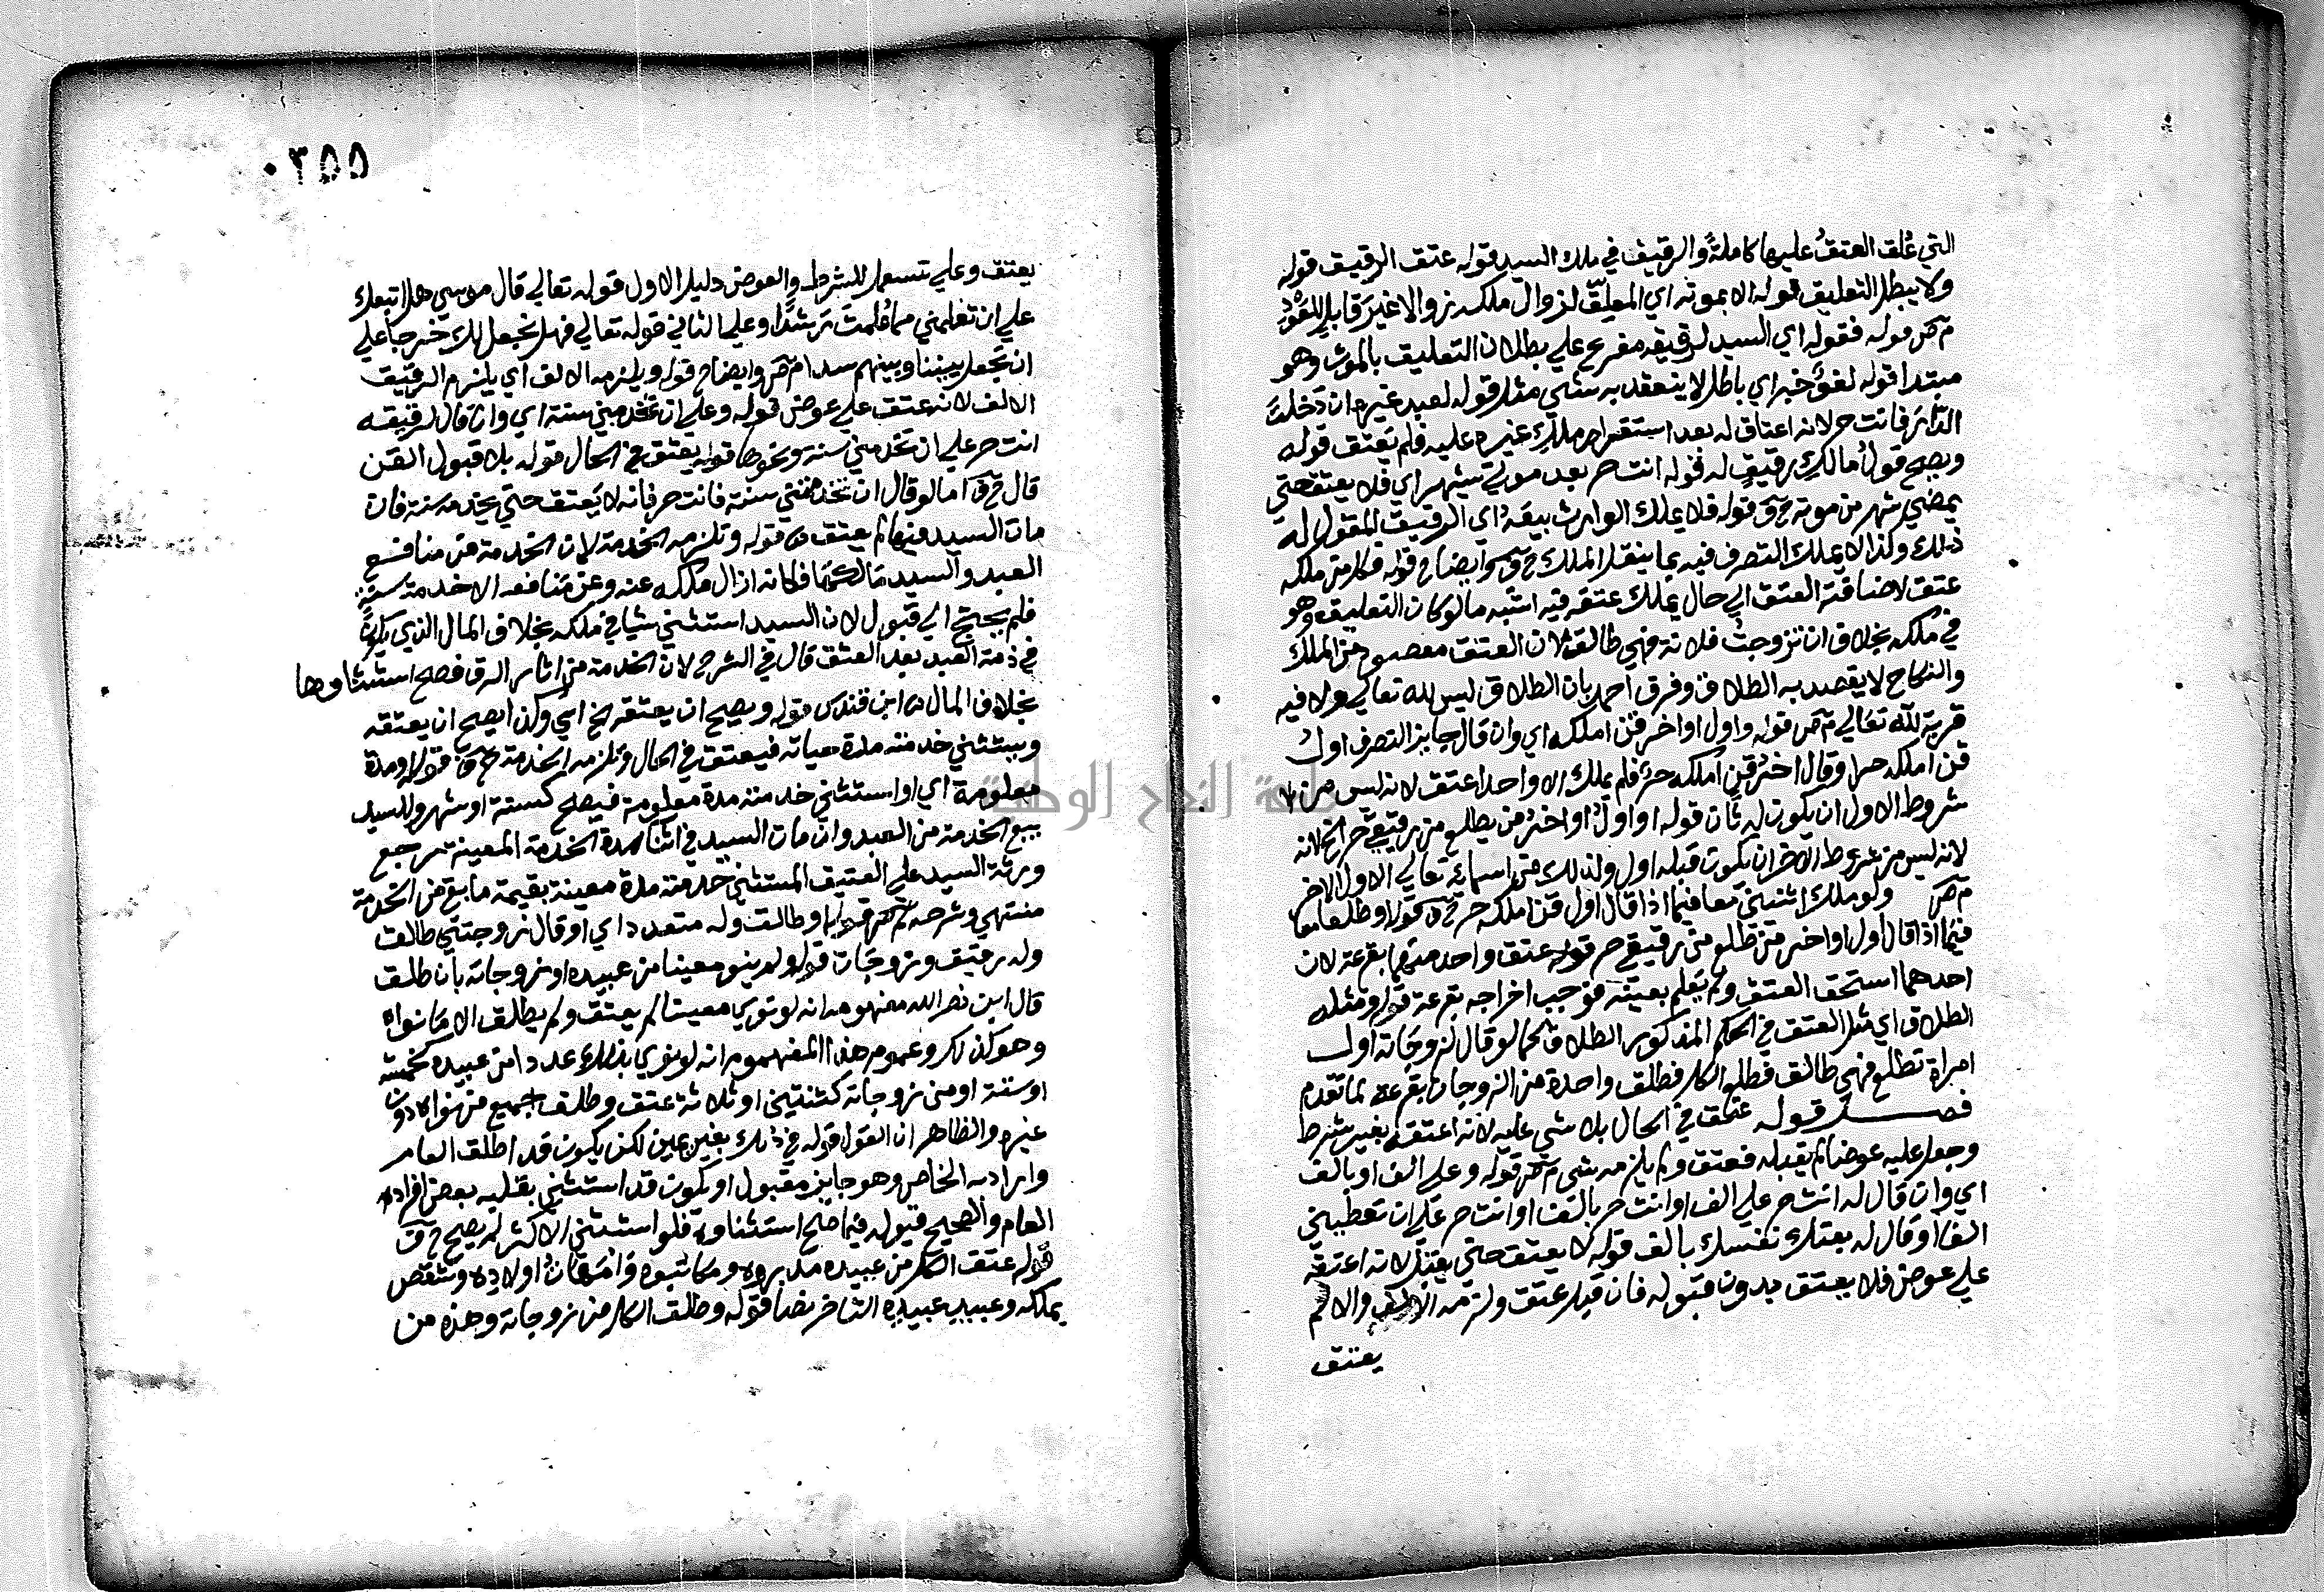 التي عُلق العتقُ عليها كاملةً والرقيق في ملك السيد قوله عتق الرقيق قوله
ولا يبطل التعليق قوله الا بموته اي المعلِّق لزوال ملكه زوالا غيرَ قابلٍ للعَوْدِ
م ص قوله فقوله اي السيد لرقيقه مفرع على بطلان التعليق بالموت وهو
مبتدا قوله لغوٌ خبر اي باطل لا ينعقد به شي مثل قوله لعبد غيره ان دخلتَ
الدَّارَ فانت حر لانه اعتاق له بعد استقرار ملكِ غيره عليه فلم يَعتق قوله
ويصح قولُ مالكِ رقيقٍ له قوله انت حر بعد موتي بشهر اي فلا يعتق حتي
يمضي شهر من موته ح ف قوله فلا يملك الوارث بيعَهُ اي الرقيق المقول له
ذلك وكذا لا يملك التصرف فيه بما ينقل الملك ح ف وايضاح قوله فكل من ملكه
عتق لاضافته العتق الي حال يملك عتقه فيه اشبه ما لو كان التعليق وهو
في ملكه بخلاف ان تزوجتُ فلانة فهي طالق لان العتق مقصود من الملك
والنكاح لا يقصد به الطلاق وفرق احمد بان الطلاق ليس لله تعالي ولا فيه
قربة لله تعالي م ص قوله واول او اخر قن املكه اي وان قال جايز التصرف اولُ
قن املكه حر او قال اخرُ قن املكه حرٌ فلم يملك الا واحدا عتق لانه ليس من
شروط الاول ان يكون له ثان قوله او اولُ او اخرُ من يطلع من رقيقي حر الخ لانه
لانه ليس من شروط الاخر ان يكون قبله اول ولذلك من اسمائه تعالي الاول الاخر
م ص ولو ملك اثنين معا فيما اذا قال اول قن املكه حر ح ف قوله او طلعا معا
فيما اذا قال اول او اخر من يطلع من رقيقي حر قوله عتق واحد منهما بقرعة لان
احدهما استحق العتق ولم يعلم بعينه فوجب اخراجه بقرعة قوله ومثله
الطلاق اي مثل العتق في الحكم المذكور الطلاق كما لو قال لزوجاته اول
امراة تطلع فهي طالق فطلع الكل فطلق واحدة من الزوجات بقرعة لما تقدم
فصل قوله عتق في الحال بلا شي عليه لانه اعتقه بغير شرط
وجعل عليه عوضا لم يقبله فعتق ولم يلزمه شي م ص قوله وعلى الف او بالف
اي وان قال له انت حر علي الف او انت حر بالف او انت حر علي ان تعطيني
الفا او قال له بعتك نفسك بالف قوله لا يعتق حتى يقبلَ لانه اعتقه
على عوض فلا يعتق بدون قبوله فان قبل عتق ولزمه الالف والا لم
يعتق
٠٣٥٥
يعتق وعلى تستعمل للشرط والعوض دليل الاول قوله تعالى قال موسى هل اتبعك
علي ان تعلمني مما عُلمتَ رشدًا وعلى الثاني قوله تعالى فهل نجعل لك خرجا علي
ان تجعل بيننا وبينهم سدا م ص وايضاح قوله ويلزمه الالف اي يلزم الرقيق
الالف لانه عتق علي عوض قوله وعلى ان تخدمني سنة اي وان قال لرقيقه
انت حر علي ان تخدمني سنة ونحوها قوله يعتق في الحال قوله بلا قبول القن
قال ح ف اما لو قال ان تخدمني سنة فانت حر فانه لا يَعتق حتي يخدمه سنة فان
مات السيد فيها لم يعتق قوله وتلزمه الخدمة لان الخدمة من منافع
العبد والسيد مالكهما فكانه ازال ملكه عنه وعن منافعه الا خدمة سنة
فلم يحتج الي قبول لان السيد استثني شيا في ملكه بخلاف المال الذي يكون
في ذمة العبد بعد العتق قال في الشرح لان الخدمة من اثار الرق فصح استثناوها
بخلاف المال ابن قندس قوله ويصح ان يعتقه الخ اي وكذا يصح ان يعتقه
ويستثني خدمته مدة حياته فيعتق في الحال وتلزمه الخدمة ح ف قوله او مدة
معلومة اي او استثني خدمته مدة معلومة فيصح كسنة او شهر وللسيد
بيع الخدمة من العبد وان مات السيد في اثناء مدة الخدمة المعينة رجع
ورثة السيد على العتيق المستثني خدمته مدة معينة بقيمة ما بقي من الخدمة
منتهي وشرحه م ص قوله او طالق وله متعدد اي او قال زوجتي طالق
وله رقيق وزوجات قوله ولم ينو معينا من عبيده او زوجاته بان طلق
قال ابن نصر الله مفهومه انه لو نوي معينا لم يعتق ولم يطلق الا ما نواه
وهو كذلك وعموم هذا المفهوم انه لو نوي بذلك عددا من عبيده كخمسة
او ستة او من زوجاته كثنتين او ثلاثة عتق وطلق جميع من نواه دون
غيره والظاهر ان القول قوله في ذلك بغير يمين لكن يكون قد اطلق العام
واراد به الخاص وهو جايز مقبول او يكون قد استثني بقلبه بعض افراد
العام والصحيح قبوله فيما صح استثناوه فلو استثني الاكثر لم يصح ح ف
قوله عتق الكل من عبيده مدبروه ومكاتبوه وامهاتُ اولاده وشقص
يملكه وعبيد عبيده التاجر نصا قوله وطلق الكل من زوجاته وهذه من